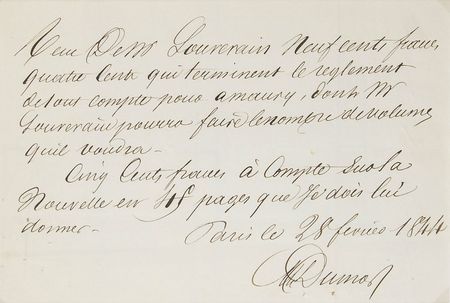 Recu De Mr Souverain Neuf cents francs
quatre Cents qui terminent le reglement
de tout compte pour amaury, dont Mr
Souverain pourra faire le nombre de volumes
qu'il voudra -
Cinq Cents francs à Compte Sur la
Nouvelle en 45 pages que Je dois lui
donner -
Paris le 28 fevrier 1844
Al Dumas